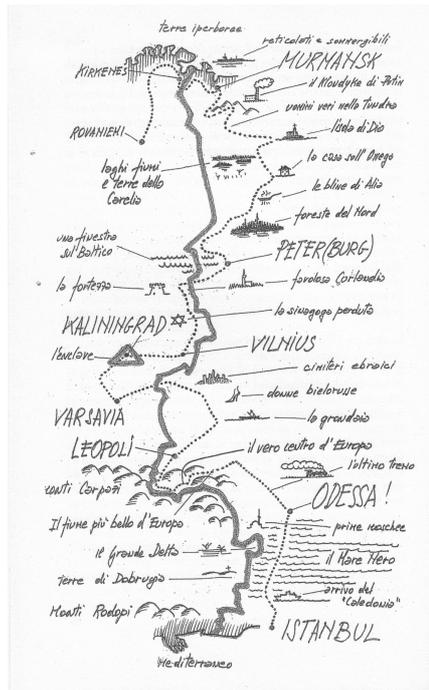 terre iperboree
reticolati e sommergibili
MURMANSK
KIRKENES
il Kloudyke di Putin
uomini veri nella Tundra
ROVANIEMI
l'isola di Dio
la casa sull'Onega
laghi fiumi
e terre della
Carelia
le bline di Alia
foreste del Nord
una finestra
sul Baltico
PETER(BURG)
la fortezza
favolosa Curlandia
la sinagoga perduta
KALININGRAD
VILNIUS
l'enclave
cimiteri ebraici
donne bielorusse
VARSAVIA
la grondaia
LEOPOLI
il vero centro d'Europa
l'ultimo treno
Monti Carpazi
ODESSA!
Il fiume più bello d'Europa
prime moschee
il Grande Delta
il Mare Nero
terre di Dobrugia
arrivo del
"Caledonia"
Monti Rodopi
ISTANBUL
Mediterraneo